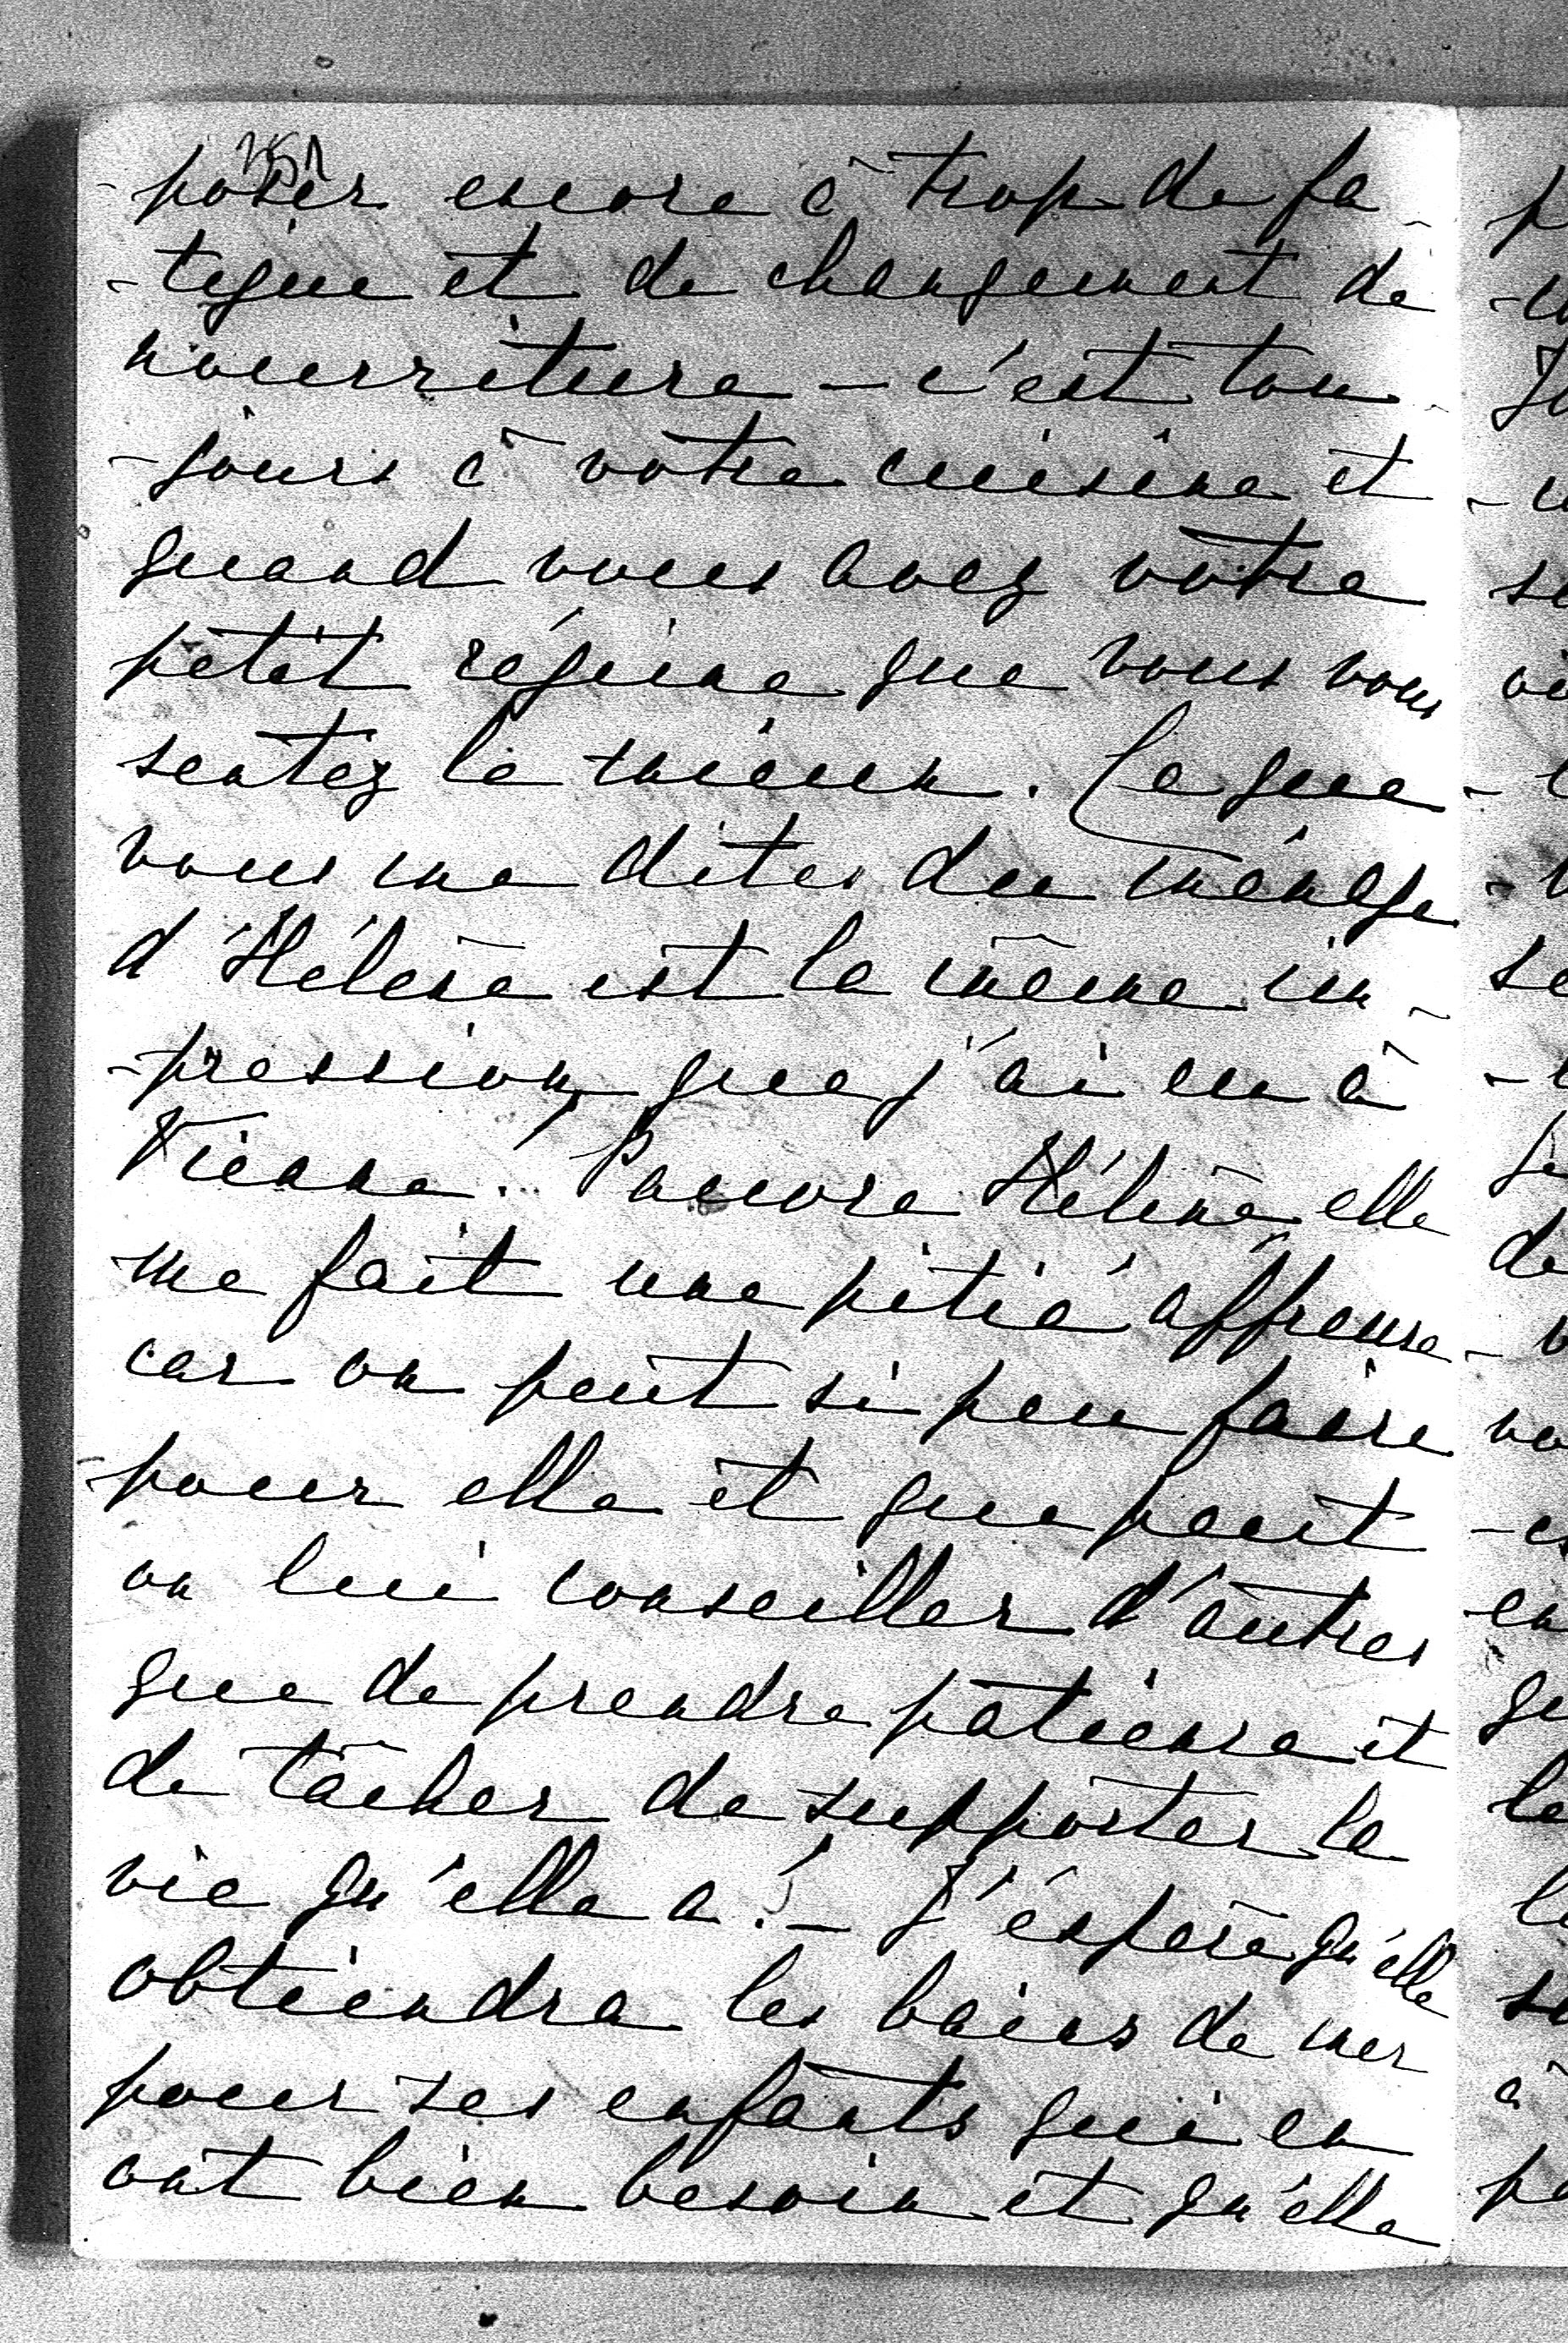 -poser encore à trop de fa-
-tigue et de changement de
nourriture — c'est tou-
-jours à votre cuisine et
quand vous avez votre
petit régime que vous vous
sentez le mieux. Ce que
vous me dites du ménage
d'Hélène est la même im-
-pression que j'ai eu à
Vienne. Pauvre Hélène elle
me fait une pitié affreuse
car on peut si peu faire
pour elle et que peut
on lui conseiller d'autres
que de prendre patience et
de tâcher de supporter la
vie qu'elle a! — J'éspère qu'elle
obtiendra les bains de mer
pour ses enfants qui en
ont bien besoin et qu'elle